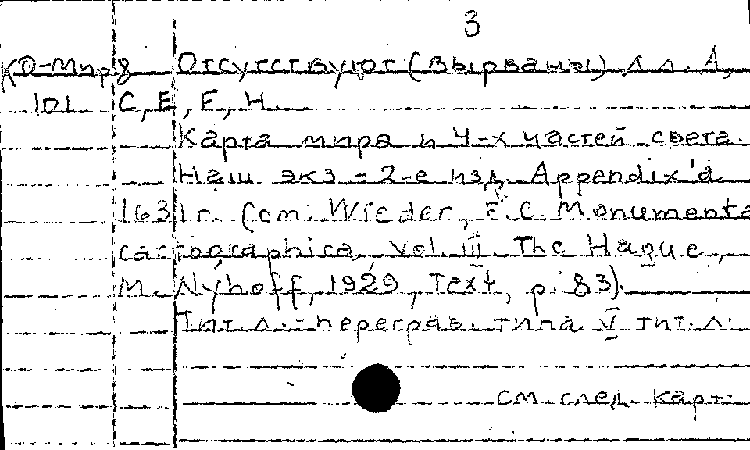 3
КО-Мир8 Отсутствуют (вырваны) л.л. A,
101 C, E, F, H.
Карта мира и 4-х частей света.
Наш экз - 2-е изд. Appendix'а
1631 г. (см. Wieder, F.C. Monumenta
cartographica, Vol. III The Hague,
M. Nyhoff, 1929, Text, p. 83).
Тит. л. - перегра. типа V тит. л.
см след. карт.